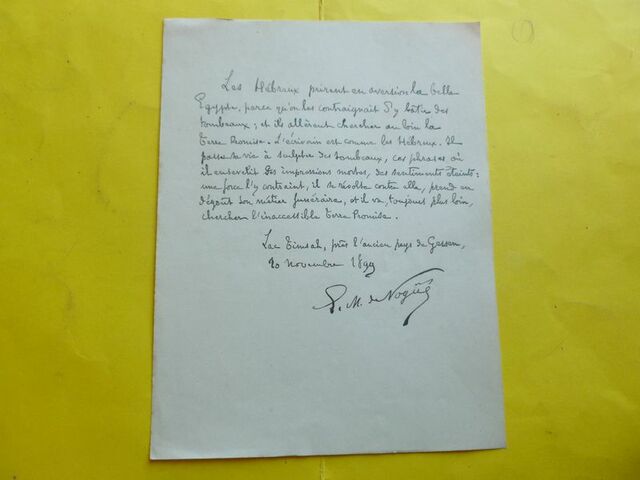 Les Hébreux prirent en aversion la belle
Egypte, parce qu'on les contraignait d'y bâtir des
tombeaux; et ils allèrent chercher au loin la
Terre Promise. L'écrivain est comme les Hébreux. Il
passe sa vie à sculpter des tombeaux, ces phrases où
il ensevelit des impressions mortes, des sentiments éteints:
une force l'y contraint, il se révolte contre elle, prend en
dégoût son métier funéraire, et il va, toujours plus loin,
chercher l'inaccessible Terre Promise.
Lac Timsah, près l'ancien pays de Gessen,
20 novembre 1899
E. M. de Vogüé